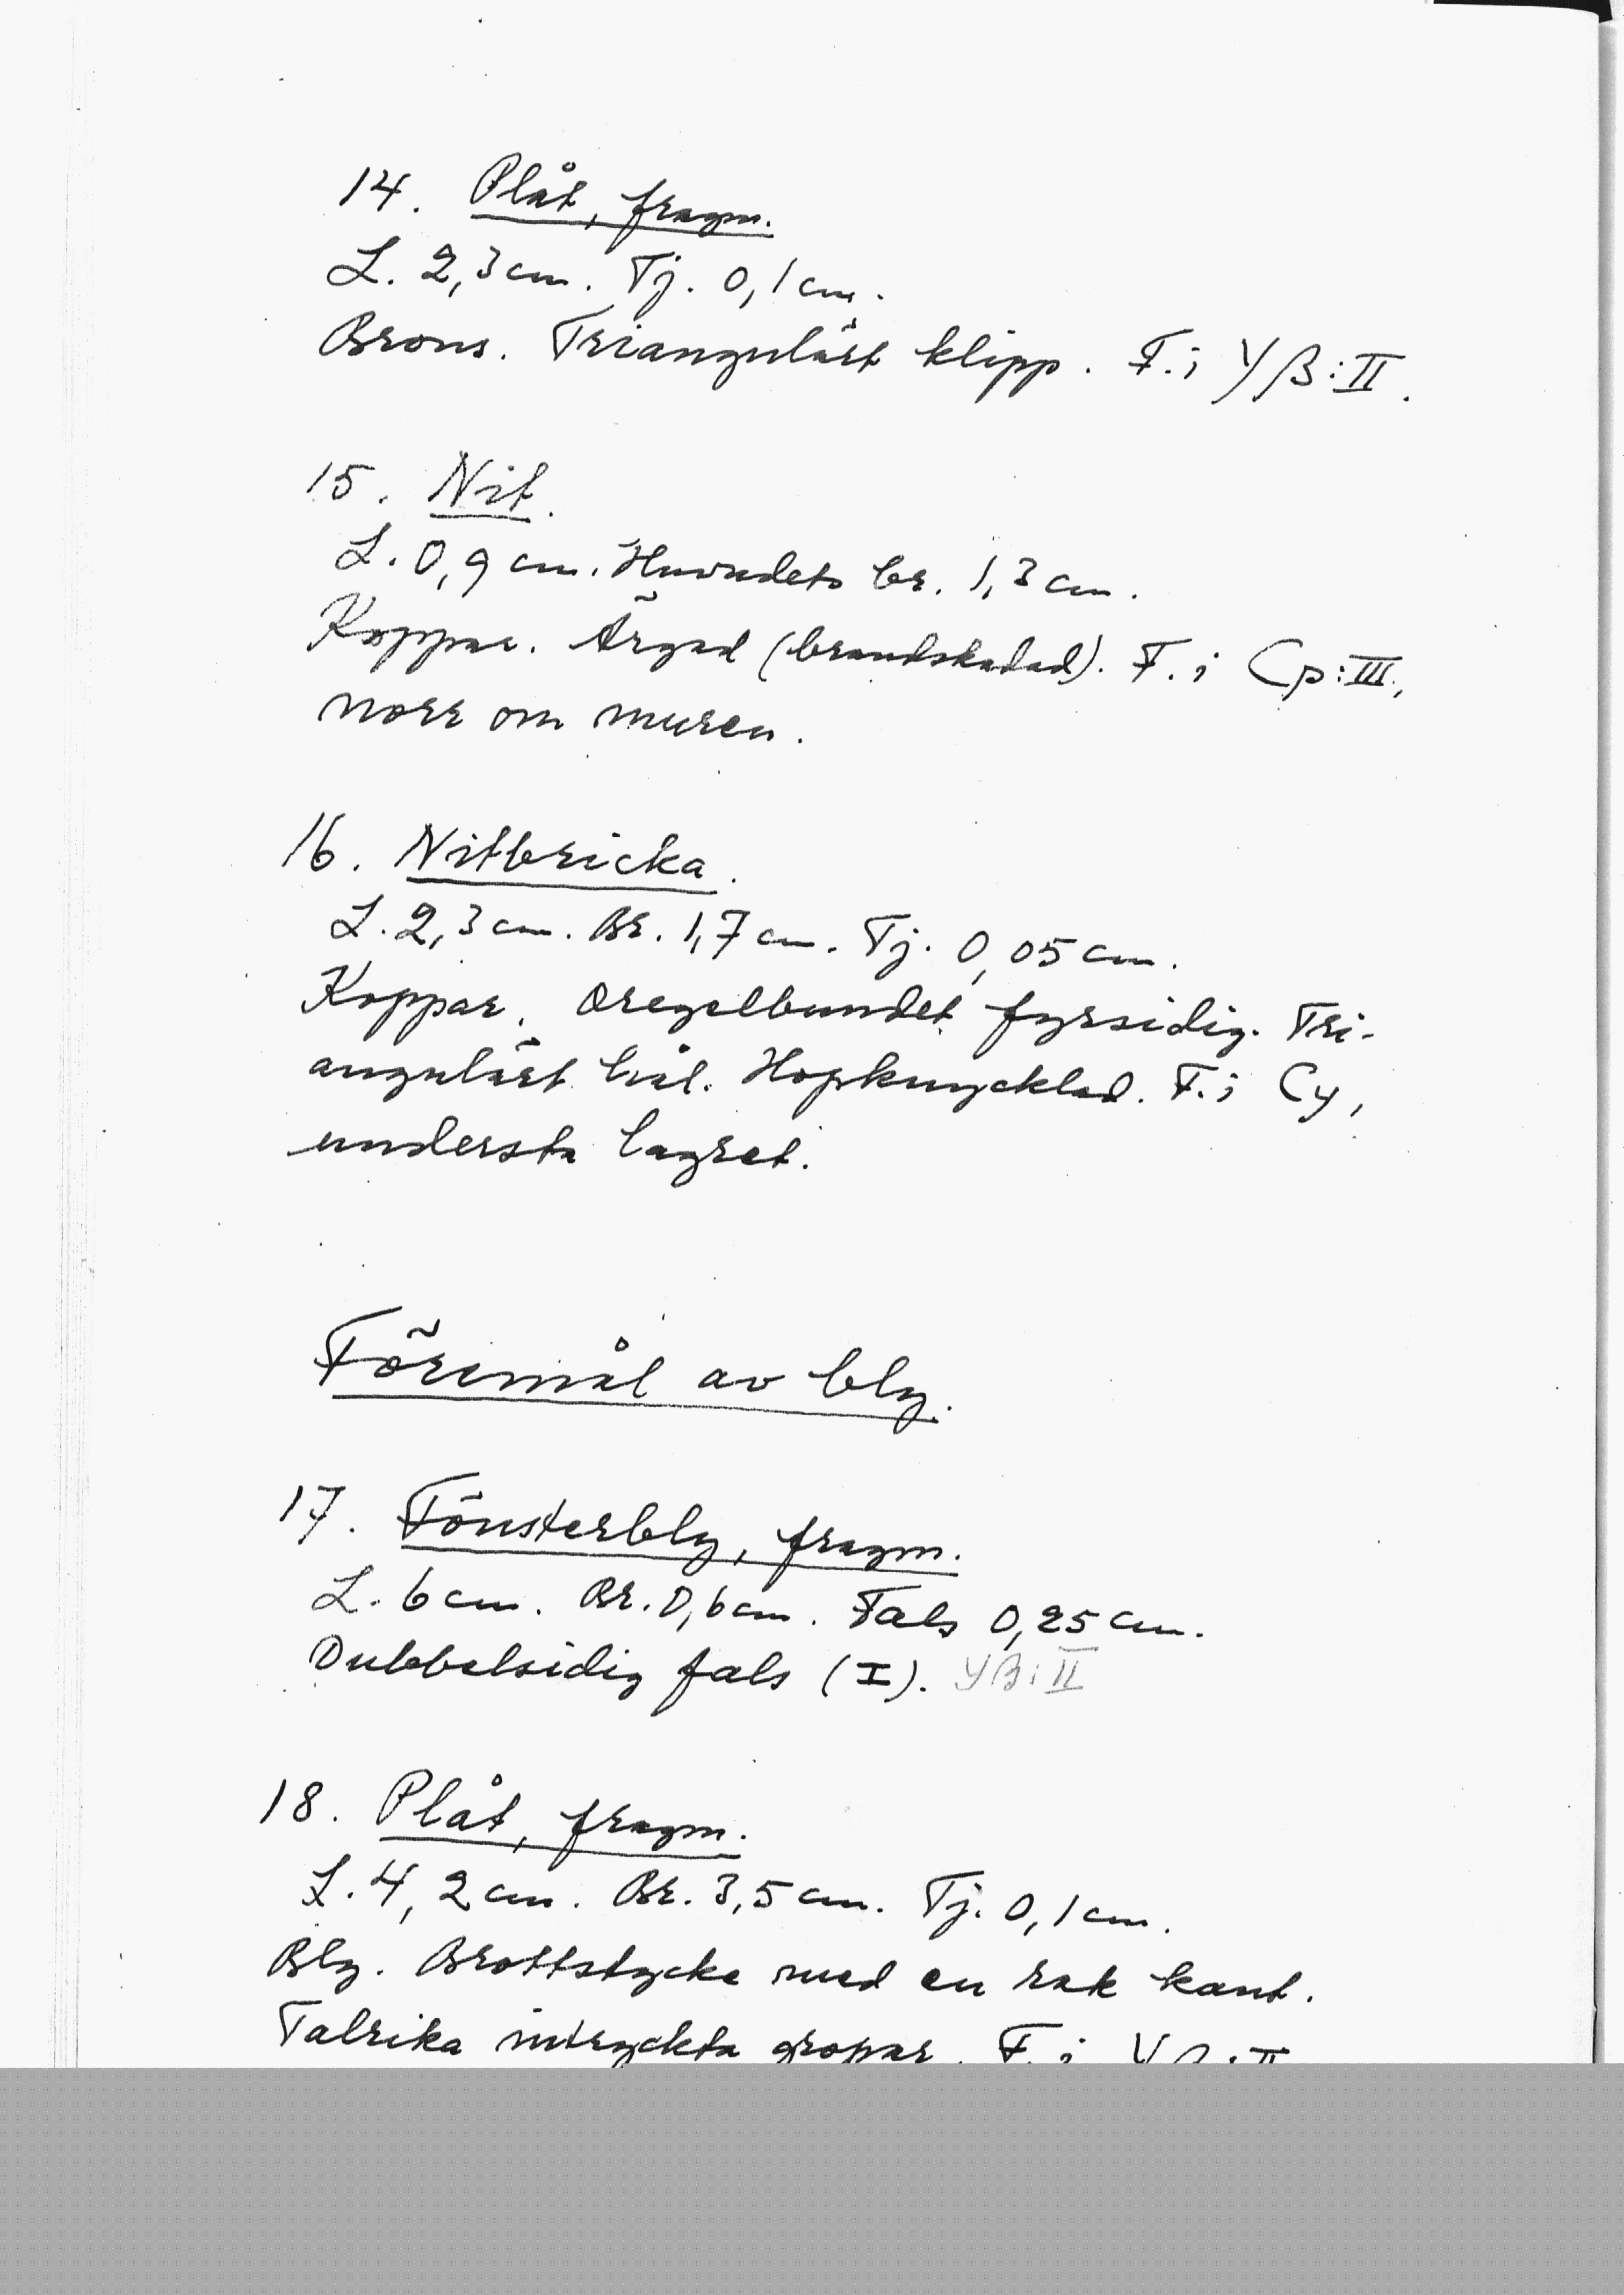 14. Plåt, fragm.
L. 2,3 cm. Tj. 0,1 cm.
Brons. Triangulärt klipp. F. i Yβ:II.
15. Nit.
L. 0,9 cm. Huvudets br. 1,3 cm.
Koppar. Ärgad (brandskadad). F. i Cp:III,
norr om muren.
16. Nitbricka.
L. 2,3 cm. Br. 1,7 cm. Tj. 0,05 cm.
Koppar. Oregelbundet fyrsidig. Tri-
angulärt hål. Hopknycklad. F. i Cy,
understa lagret.
Föremål av bly.
17. Fönsterbly, fragm.
L. 6 cm. Br. 0,6 cm. Fals 0,25 cm.
Dubbelsidig fals (I). Yβ:II
18. Plåt, fragm.
L. 4,2 cm. Br. 3,5 cm. Tj. 0,1 cm.
Bly. Brottstycke med en rak kant.
Talrika intryckta gropar. F. i